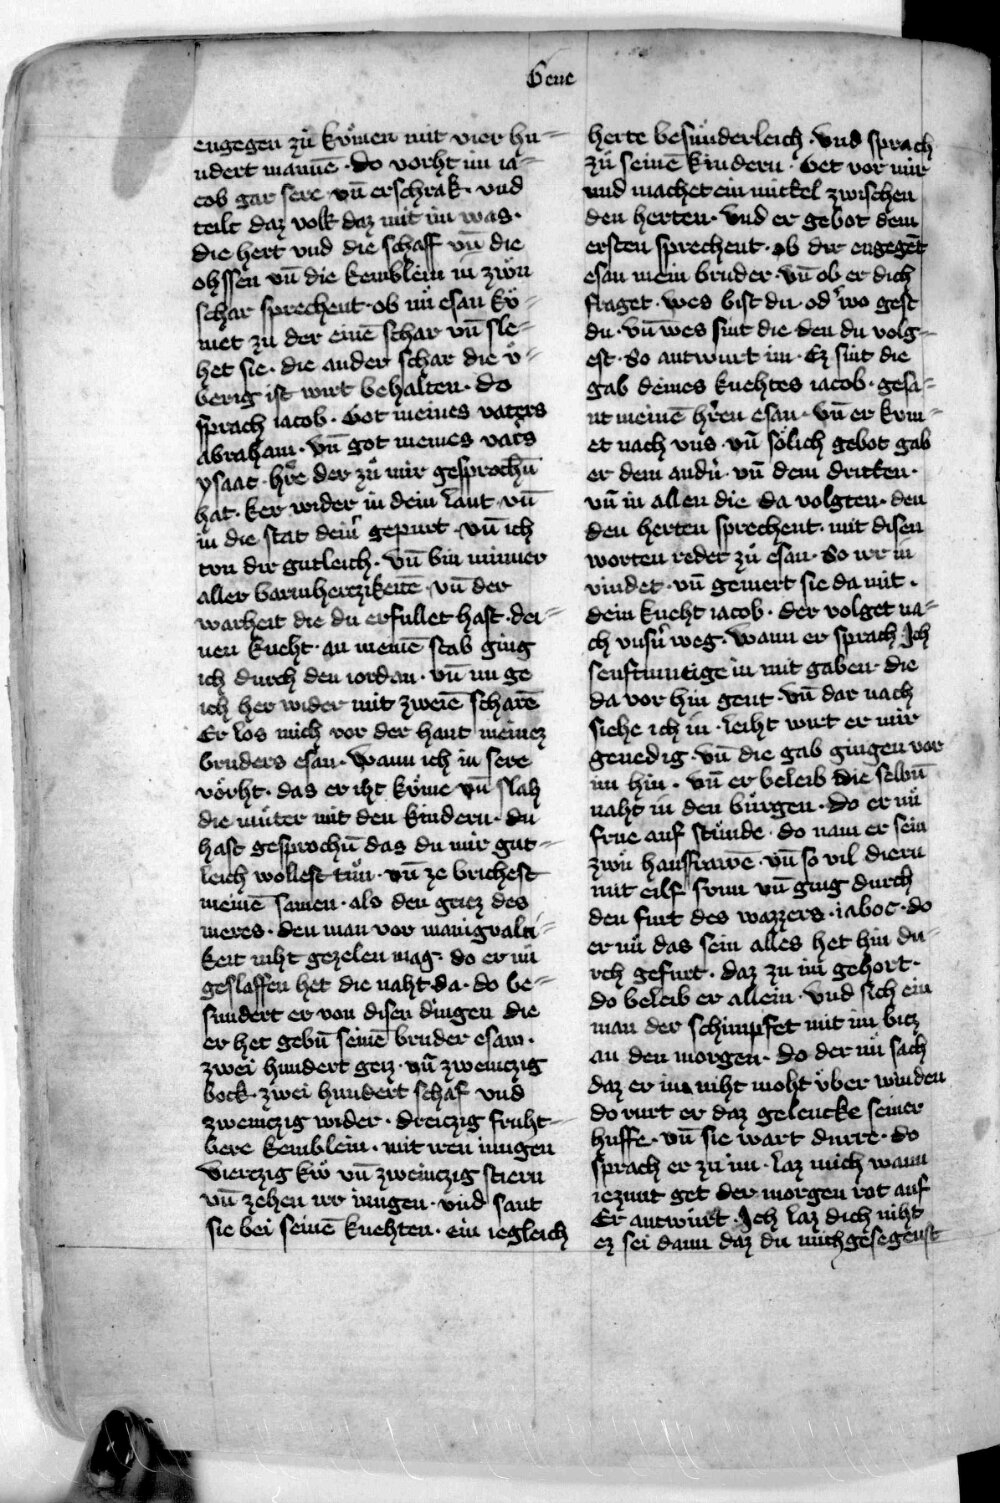 Gene
engegen zuͦ koͤmen mit vier hu=
ndert mannē · do vorht im ia=
cob gar sere vn̄ erschrak · vnd
teilt daz volk daz mit im was ·
die hert vnd die schaff vn̄ die
ohssen vn̄ die kemblein in zwuͦ
schar sprechent · ob nuͦ esau koͤ=
met zu der einē schar vn̄ sle=
het sie · die ander schar die uͤ=
berig ist wirt behalten · do
sprach iacob · Got meines vaters
abraham · vn̄ got meines vaters
ysaac · hr̄e der zuͦ mir gesprochū
hat · ker wider in dein lant · vn̄
in die stat deinr̄ gepurt · vn̄ ich
tun dir gutleich · vn̄ bin minner
aller barmherczikeitē · vn̄ der
warheit die du erfullet hast · dei=
nen kneht · an meinē stab ging
ich durch den iordan · vn̄ nu ge
ich her wider mit zweiē scharē
Er los mich vor der hant meinez
bruders esau · Wann ich in sere
voͤrht · das er iht koͤme vn̄ slah
die muͦter mit den kindern · du
hast gesprochū das du mir gut=
leich wollest tuͦn · vn̄ ze brichest
meinē samen · als den griez des
meres · den man vor manigualti=
keit niht gezelen mag · do er nu
geslaffen het die naht da · do be=
sundert er von disen dingen die
er het gebū seinē bruder esaw ·
zwei hundert geiz · vn̄ zweinczig
bock · zwei hundert schaf vnd
zweinczig wider · dreiczig fruht=
bere kemblein · mit iren iungen
vierczig kuͦ vn̄ zweinczig stiern
vn̄ zehen irr iungen · vnd sant
sie bei seinē knehten · ein iegleich
herte besunderleich · vnd sprach
zuͦ seinē kindern · Get vor mir
vnd machet ein mittel zwischen
den herten · Vnd er gebot dem
ersten sprechent · ob dir engegēt
esau mein bruder · vn̄ ob er dich
fraget · wes bist du · od' wo gest
du · vn̄ wes sint die den du volg=
est · So antwurt im · Ez sint die
gab deines knehtes iacob · gesa=
nt meinē hr̄en esau · vn̄ er kum=
et nach vns · vn̄ soͤlich gebot gab
er dem andn̄ · vn̄ dem dritten ·
vn̄ in allen die da volgten · den
den herten sprechent · mit disen
worten redet zuͦ esau · So irr in
vindet · vn̄ gemert sie da mit ·
dein kneht iacob · der volget na=
ch vnsr̄ weg · Wann er sprach Ich
senftmutige in mit gaben · die
da vor hin gent · vn̄ dar nach
siehe ich in · leiht wirt er mir
genedig · vn̄ die gab gingen vor
im hin · vn̄ er beleib die selbū
naht in den buͤrgen · do er nuͦ
frue auf stuͦnde · do nam er sein
zwuͦ hausfrawē · vn̄ so vil diern
mit eilf sunn vn̄ ging durch
den furt des wazzers · iaboc · do
er nuͦ das sein alles het hin du=
rch gefurt · daz zu im gehort ·
do beleib er allein · Vnd sich ein
man der schimpfet mit im bicz
an den morgen · do der nuͦ sach
daz er im niht moht uͤber winden
do rurt er daz gelencke seiner
huffe · vn̄ sie wart durre · do
sprach er zu im · laz mich wann
iezunt get der morgen rot auf
Er antwurt · Ich laz dich niht
ez sei dann daz du mich gesegenst